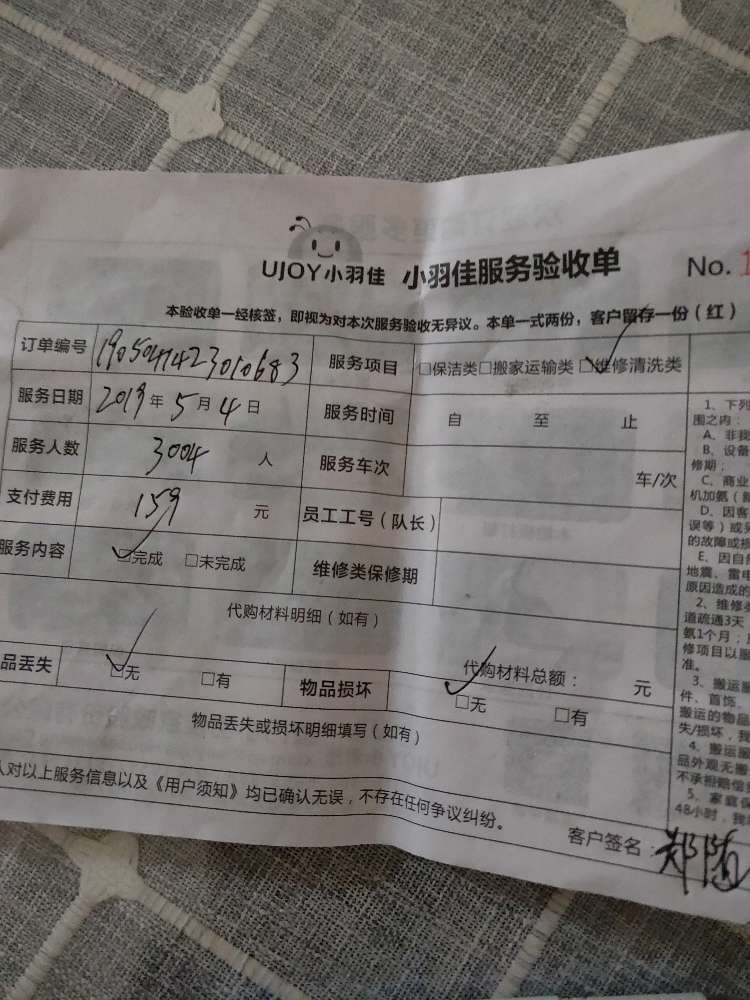 UJOY小羽佳 小羽佳服务验收单 No. 1
本验收单一经核签，即视为对本次服务验收无异议。本单一式两份，客户留存一份（红）
订单编号 1905041423010683 服务项目 □保洁类□搬家运输类□维修清洗类
服务日期 2019年5月4日 服务时间 自 至 止
服务人数 3004 人 服务车次 车/次
支付费用 159 元 员工工号（队长）
服务内容 □完成 □未完成 维修类保修期
代购材料明细（如有）
代购材料总额： 元
品丢失 □无 □有 物品损坏 □无 □有
物品丢失或损坏明细填写（如有）
人对以上服务信息以及《用户须知》均已确认无误，不存在任何争议纠纷。
客户签名：郑
1、下列
围之内：
A、非我
B、设备
修期；
C、商业
机加氨（
D、因客
误等）或
的故障或损
E、因自然
地震、雷电
原因造成的
2、维修
道疏通3天
氨1个月；
修项目以服
准。
3、搬运服
件、首饰、
搬运的物品
失/损坏，我
4、搬运服
品外观无搬
不承担赔偿
5、家庭保
48小时，我